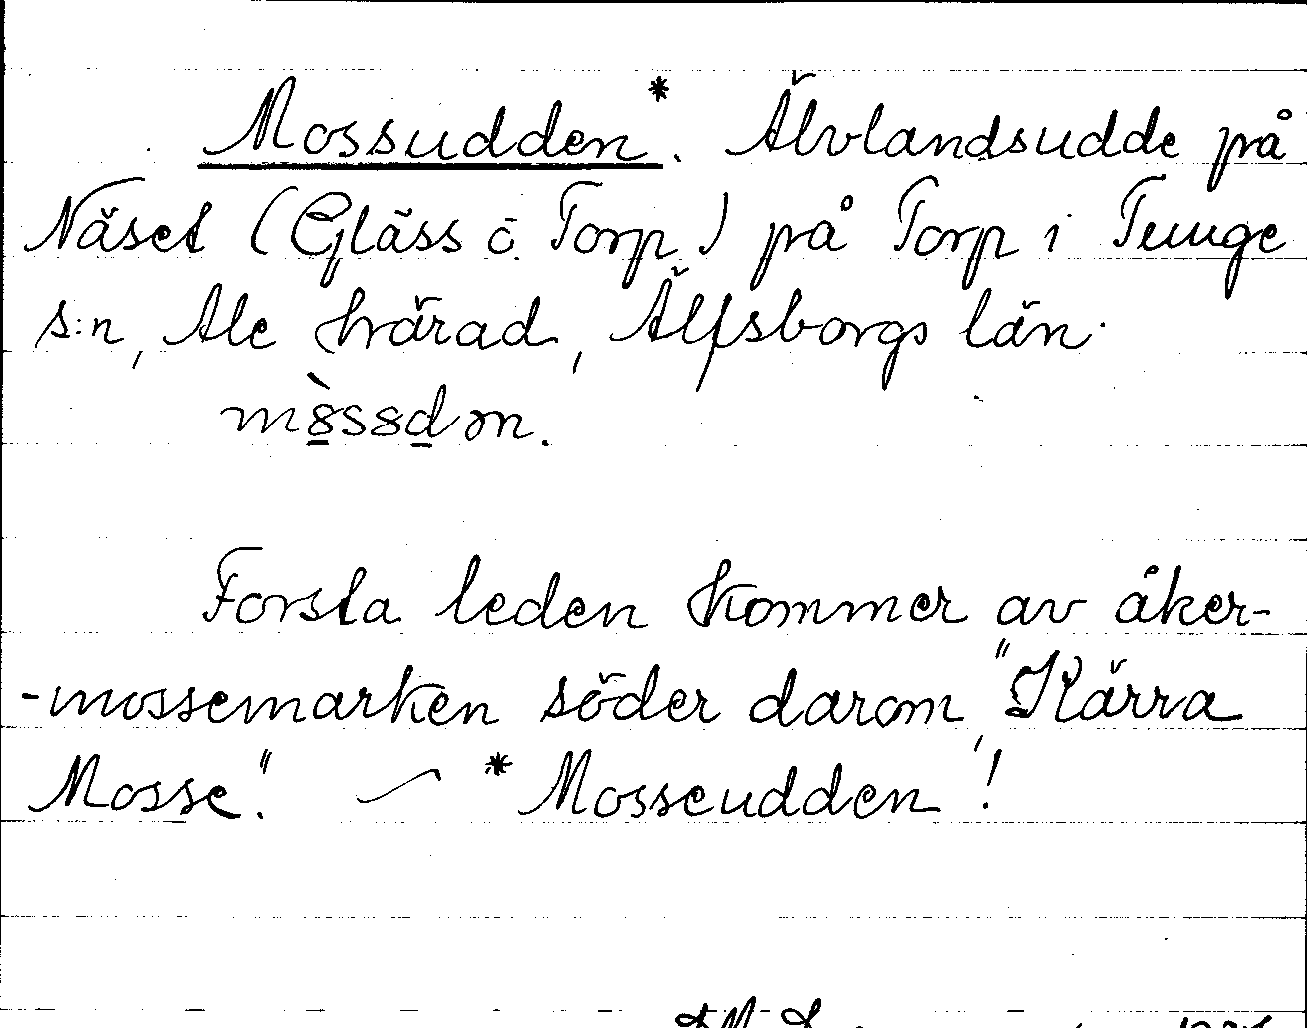 Mossudden*. Älvlandsudde på
Näset (Gläss ö. Torp) på Torp i Tunge
s:n, Ale härad, Älfsborgs län.
Första leden kommer av åker-
-mossemarken söder darom, "Kärra
Mosse". — *Mosseudden!